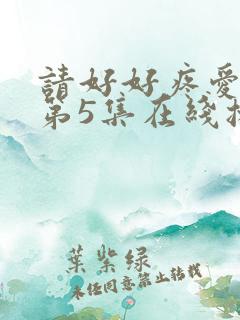 請好好疼愛
第5集在綫
葉紫绿
未经同意禁止转载